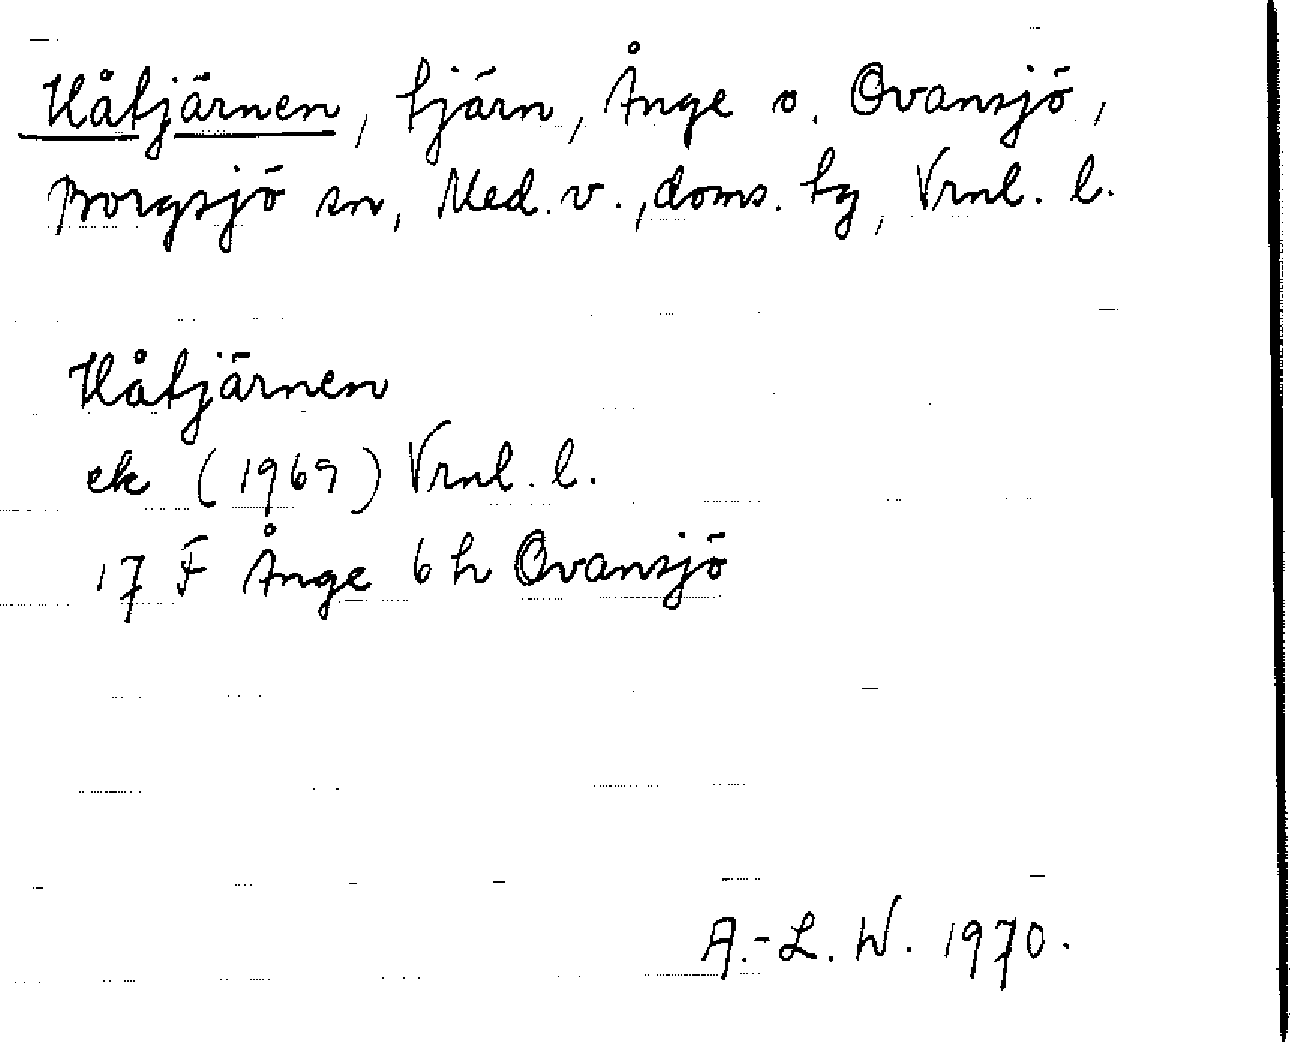 Håtjärnen, tjärn, Ånge o. Ovansjö,
Borgsjö sn, Med. v., doms. hg, Vrnl. l.
Håtjärnen
ek (1969) Vrnl. l.
17 F Ånge 6 h Ovansjö
A.-L. W. 1970.